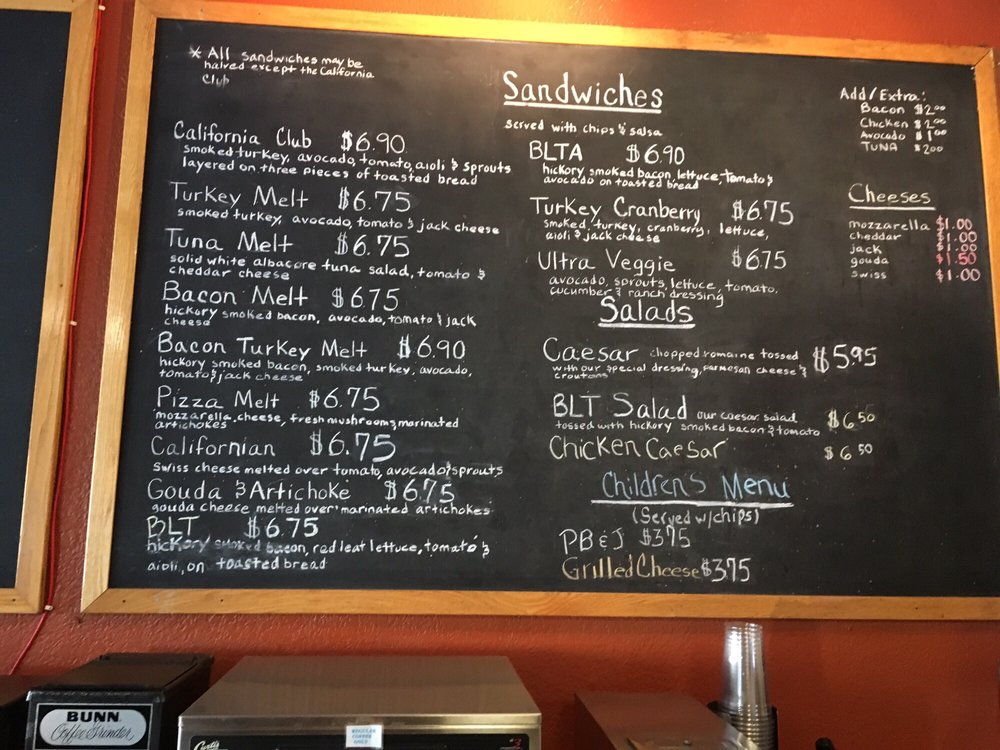 * All sandwiches may be
halved except the California
Club
Sandwiches
Served with chips & salsa
California Club $6.90
smoked turkey, avocado, tomato, aioli & sprouts
layered on three pieces of toasted bread
Turkey Melt $6.75
smoked turkey, avocado, tomato & jack cheese
Tuna Melt $6.75
solid white albacore tuna salad, tomato &
cheddar cheese
Bacon Melt $6.75
hickory smoked bacon, avocado, tomato & jack
cheese
Bacon Turkey Melt $6.90
hickory smoked bacon, smoked turkey, avocado,
tomato & jack cheese
Pizza Melt $6.75
mozzarella cheese, fresh mushrooms, marinated
artichokes
Californian $6.75
Swiss cheese melted over tomato, avocado & sprouts
Gouda & Artichoke $6.75
gouda cheese melted over marinated artichokes
BLT $6.75
hickory smoked bacon, red leaf lettuce, tomato &
aioli, on toasted bread
BLTA $6.90
hickory smoked bacon, lettuce, tomato &
avocado on toasted bread
Turkey Cranberry $6.75
smoked, turkey, cranberry, lettuce,
aioli & jack cheese
Ultra Veggie $6.75
avocado, sprouts, lettuce, tomato,
cucumber & ranch dressing
Salads
Caesar chopped romaine tossed $5.95
with our special dressing, parmesan cheese &
croutons
BLT Salad our caesar salad $6.50
tossed with hickory smoked bacon & tomato
Chicken Caesar $6.50
Children's Menu
(Served w/chips)
PB & J $3.75
Grilled Cheese $3.75
Add/Extra:
Bacon $2.00
Chicken $2.00
Avocado $1.00
TUNA $2.00
Cheeses
mozzarella $1.00
cheddar $1.00
jack $1.00
gouda $1.50
swiss $1.00
BUNN
Coffee Grinder
Curtis
REGULAR
COFFEE
ONLY